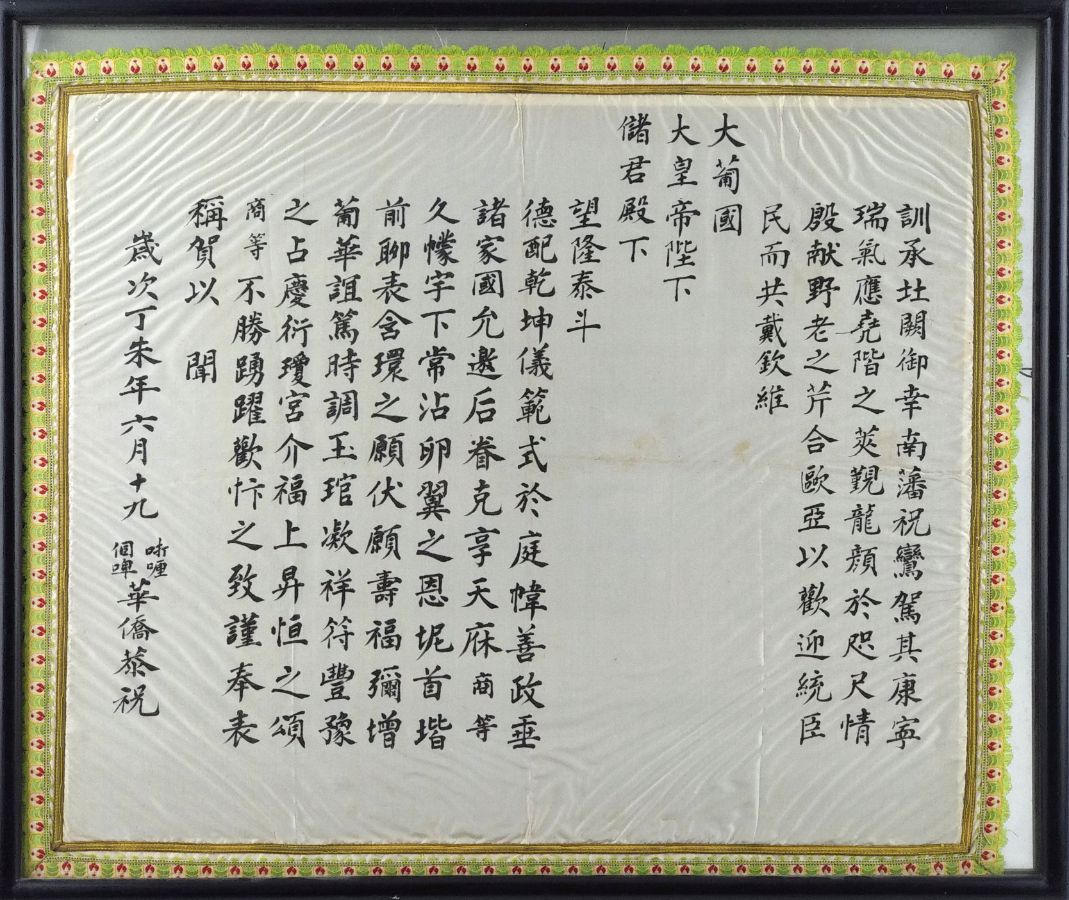 訓承壯闕御幸南藩祝鸞駕其康寧
瑞氣應堯階之蓂覲龍顏於咫尺情
殷献野老之芹合歐亞以歡迎統臣
民而共戴欽維
大葡國
大皇帝陛下
儲君殿下
望隆泰斗
德配乾坤儀範式於庭幃善政垂
諸家國允邀后眷克享天庥商等
久幪宇下常沾卵翼之恩坭首堦
前聊表含環之願伏願壽福彌增
葡華誼篤時調玉琯凝祥符豐豫
之占慶衍瓊宮介福上昇恒之頌
商等不勝踴躍歡忭之致謹奉表
稱賀以 聞
歲次丁未年六月十九 㗚㖿 個嗶 華僑恭祝